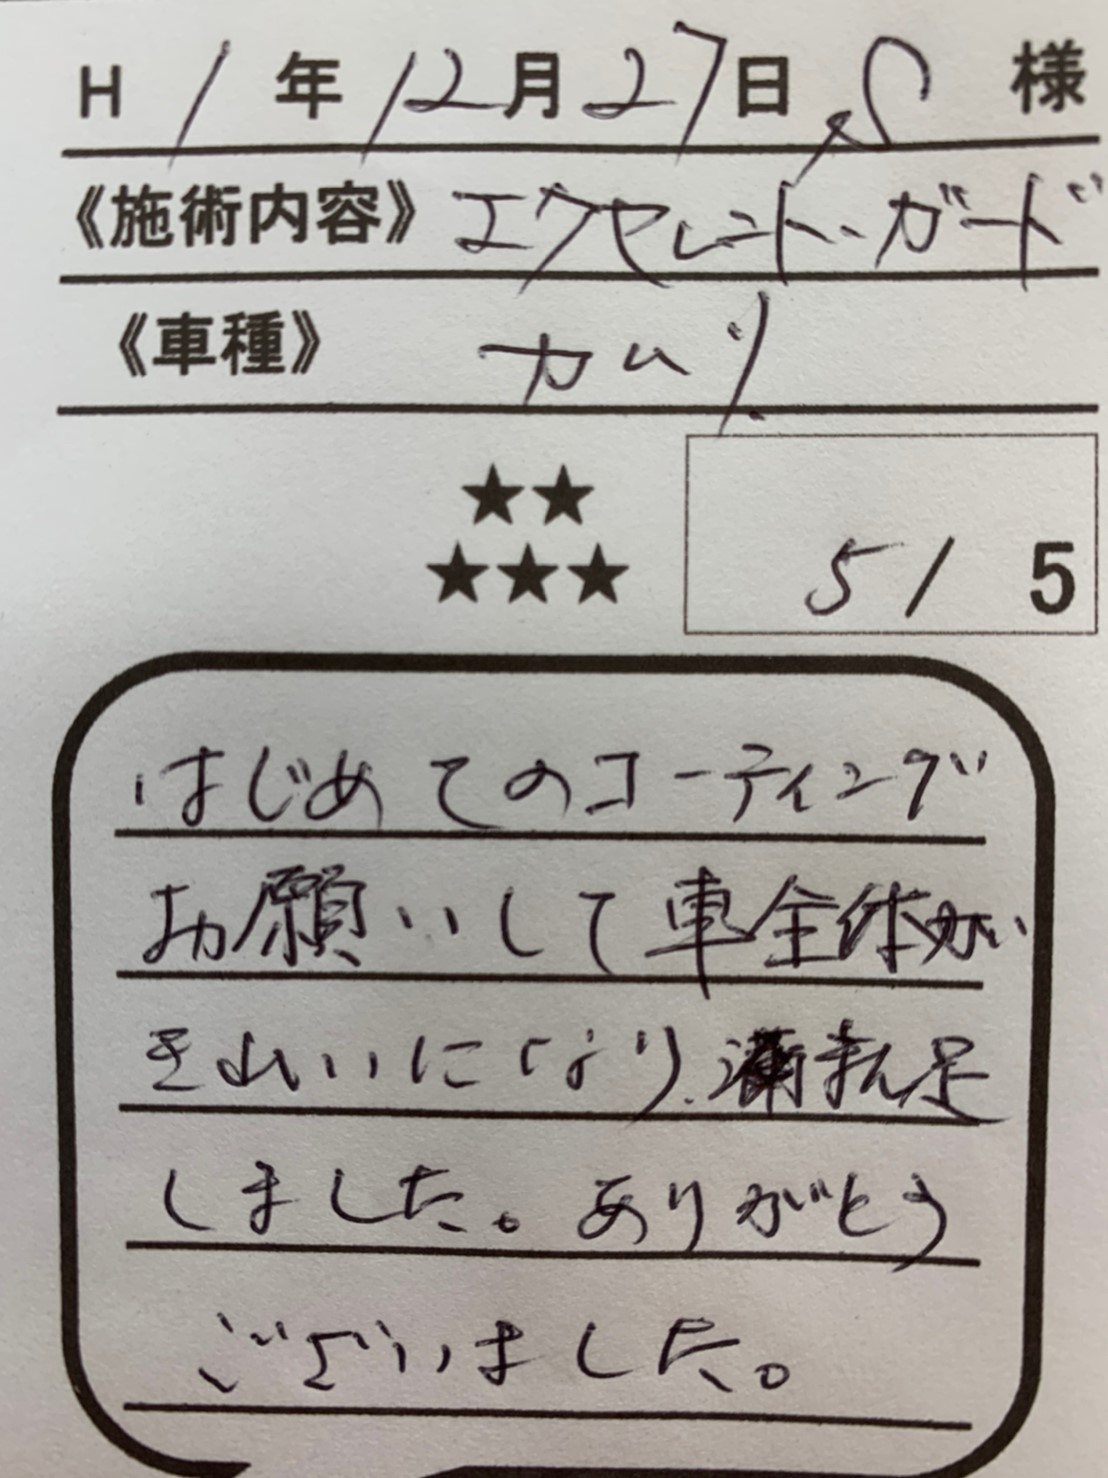 H 1年12月27日 S 様
《施術内容》エクセレント・ガード
《車種》カムリ
★★
★★★
5/5
はじめてのコーティング
お願いして車全体が
きれいになり、まん足
しました。ありがとう
ございました。